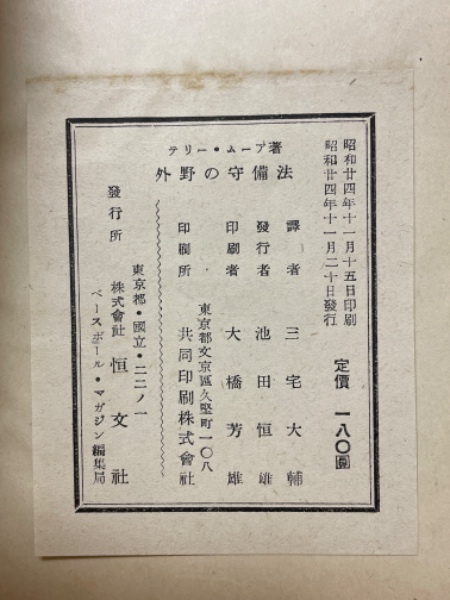 昭和廿四年十一月十五日印刷
昭和廿四年十一月二十日發行
定價 一八〇圓
テリー・ムーア著
外野の守備法
譯者 三宅大輔
發行者 池田恒雄
印刷者 大橋芳雄
東京都文京區久堅町一〇八
印刷所 共同印刷株式會社
東京都・國立・二二ノ一
發行所 株式會社 恒文社
ベースボール・マガジン編集局